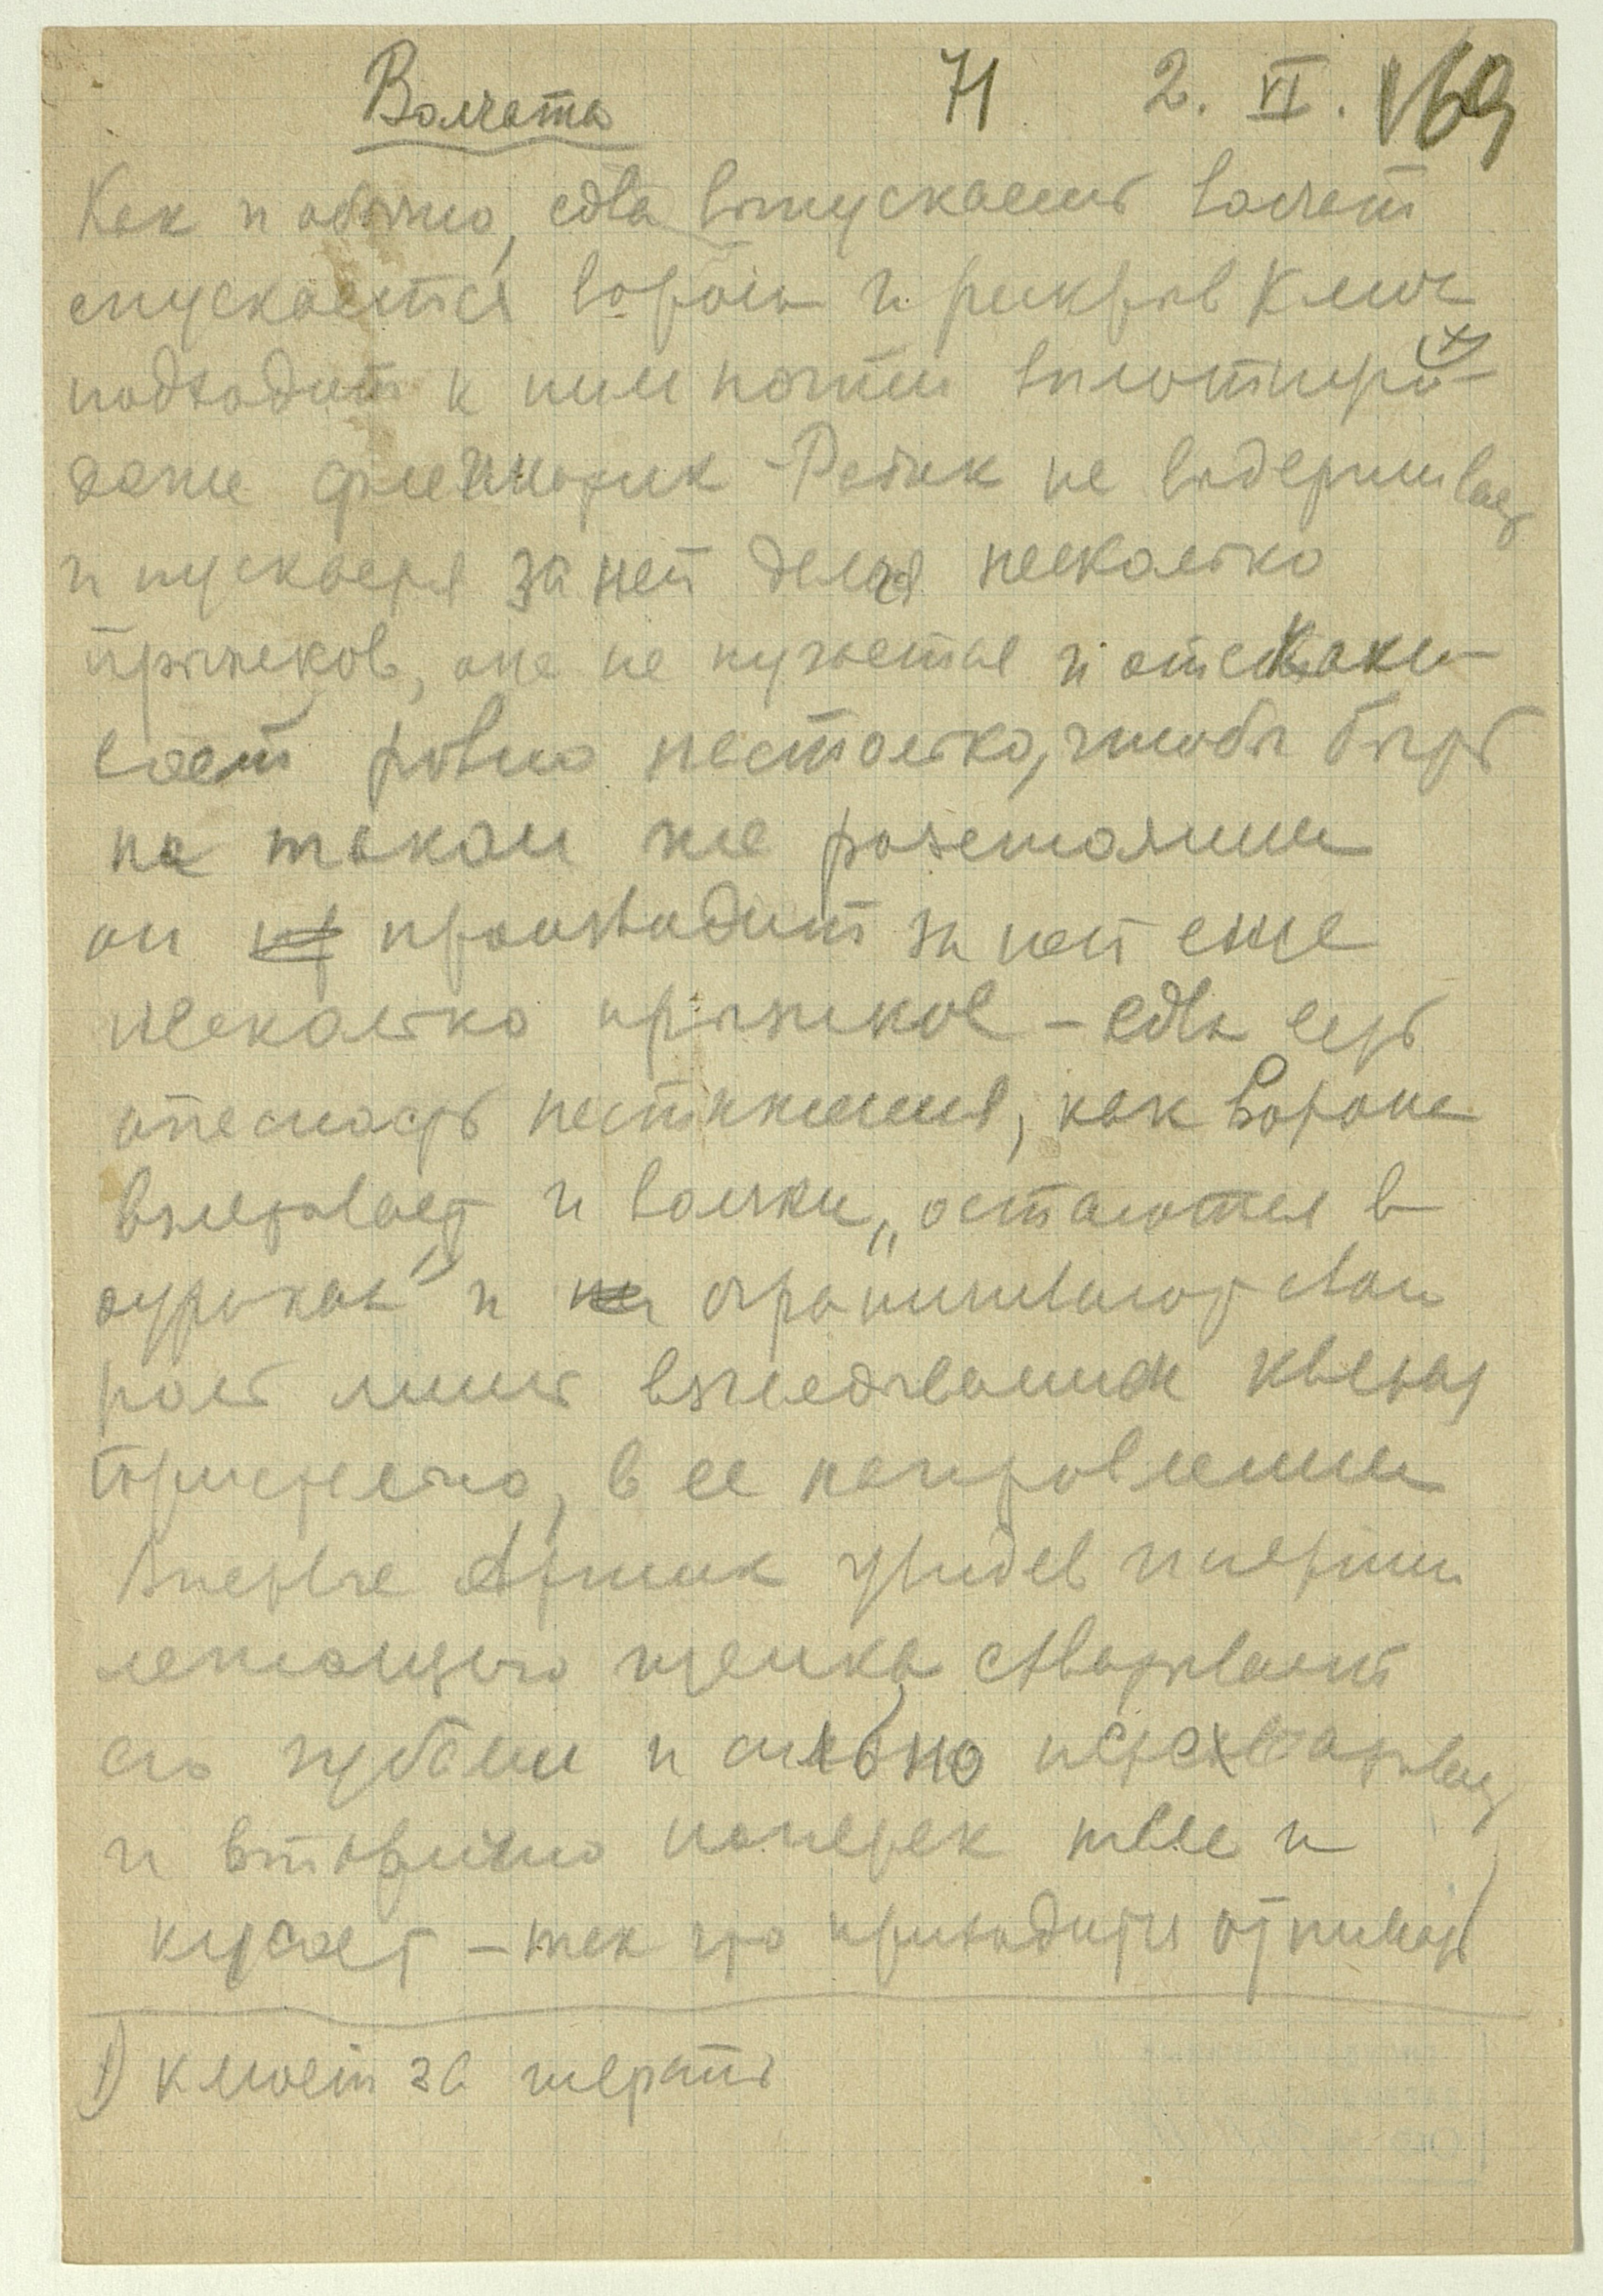 Волчата 71 2.VI. 169
Как и обычно, едва выпускаешь волчат
спускается ворона и раскрыв клюв
подходит к ним почти вплотную
даже флегматик не выдерживает
и пускается за ней делая несколько
прыжков, она не пугается и отскаки-
вает ровно настолько, чтобы быть
на таком же расстоянии
он производит за ней еще
несколько прыжков – едва есть
опасность настижения, как ворона
взлетает и волчки „остаются в
дураках" и ограничивают свою
роль лишь взглядыванием кверху
пристально, в ее направлении
Впервые увидев
лежащего щенка схватывает
его зубами и сильно перехватывает
и вторично поперек тела и
кусает – так что приходится отнимать
1) клюет за шерсть